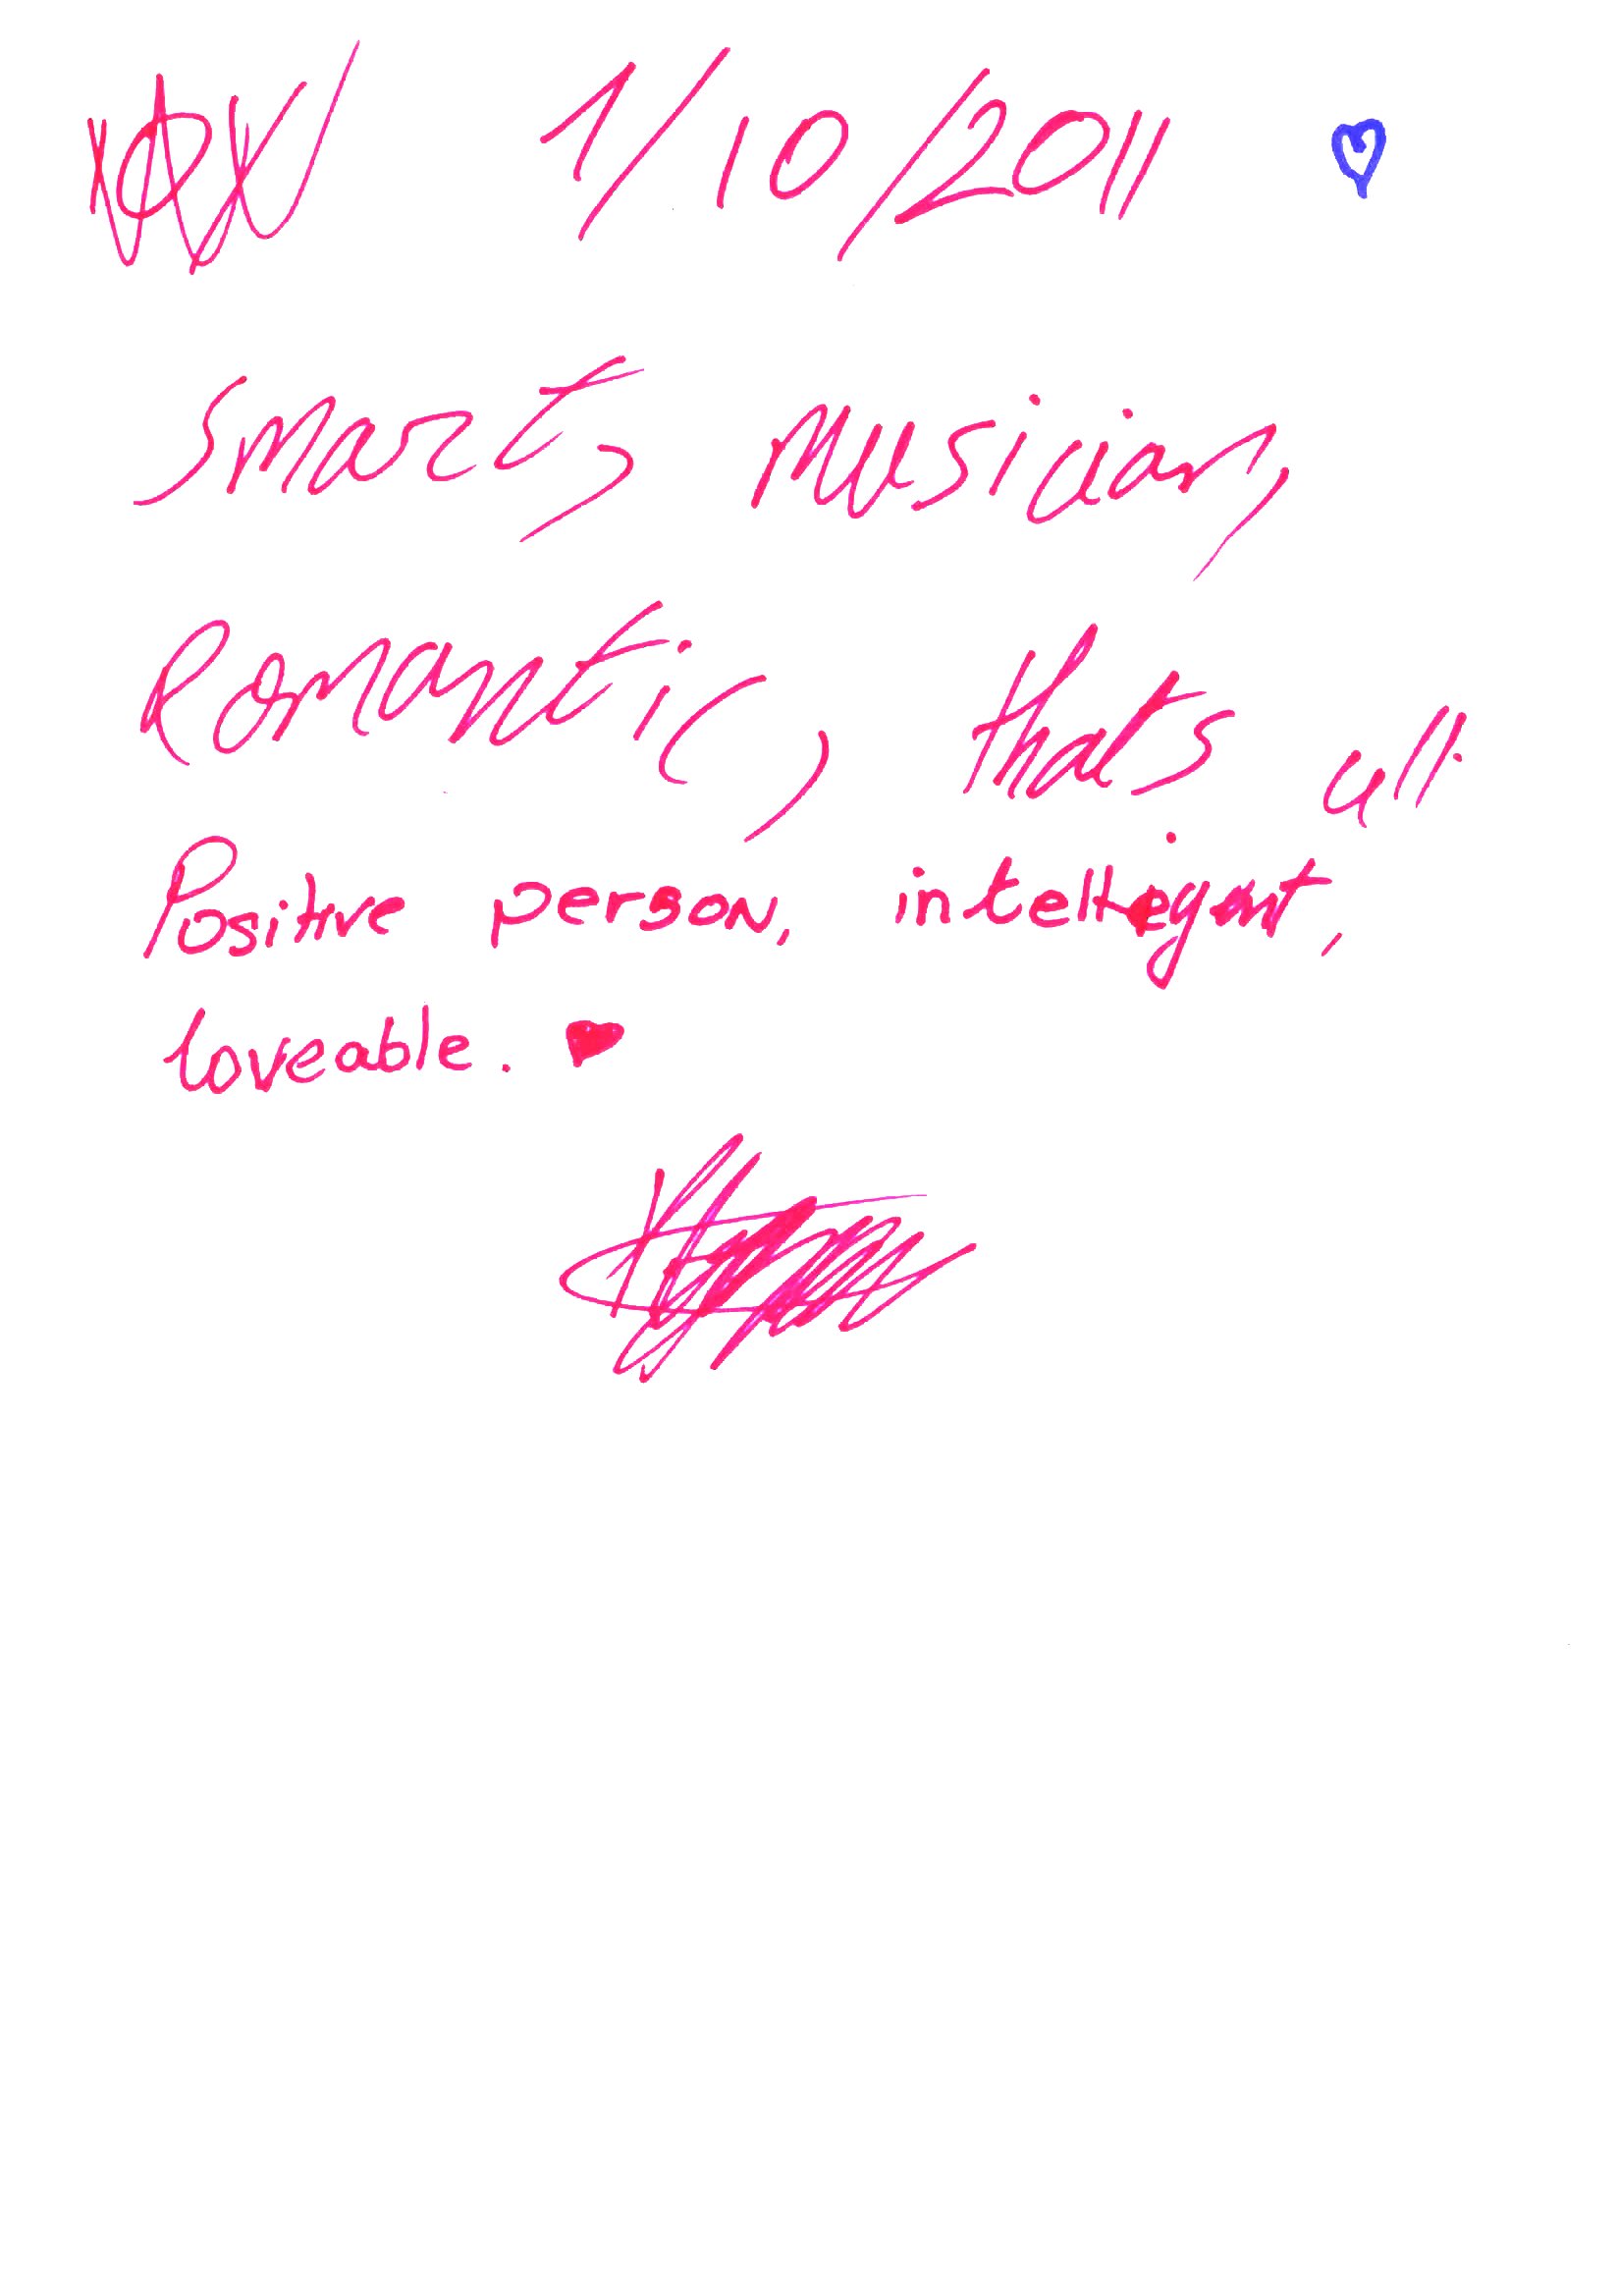 1/10/2011
smart, musician,
Romantic, that's all.
Positive person, intelligent,
loveable.